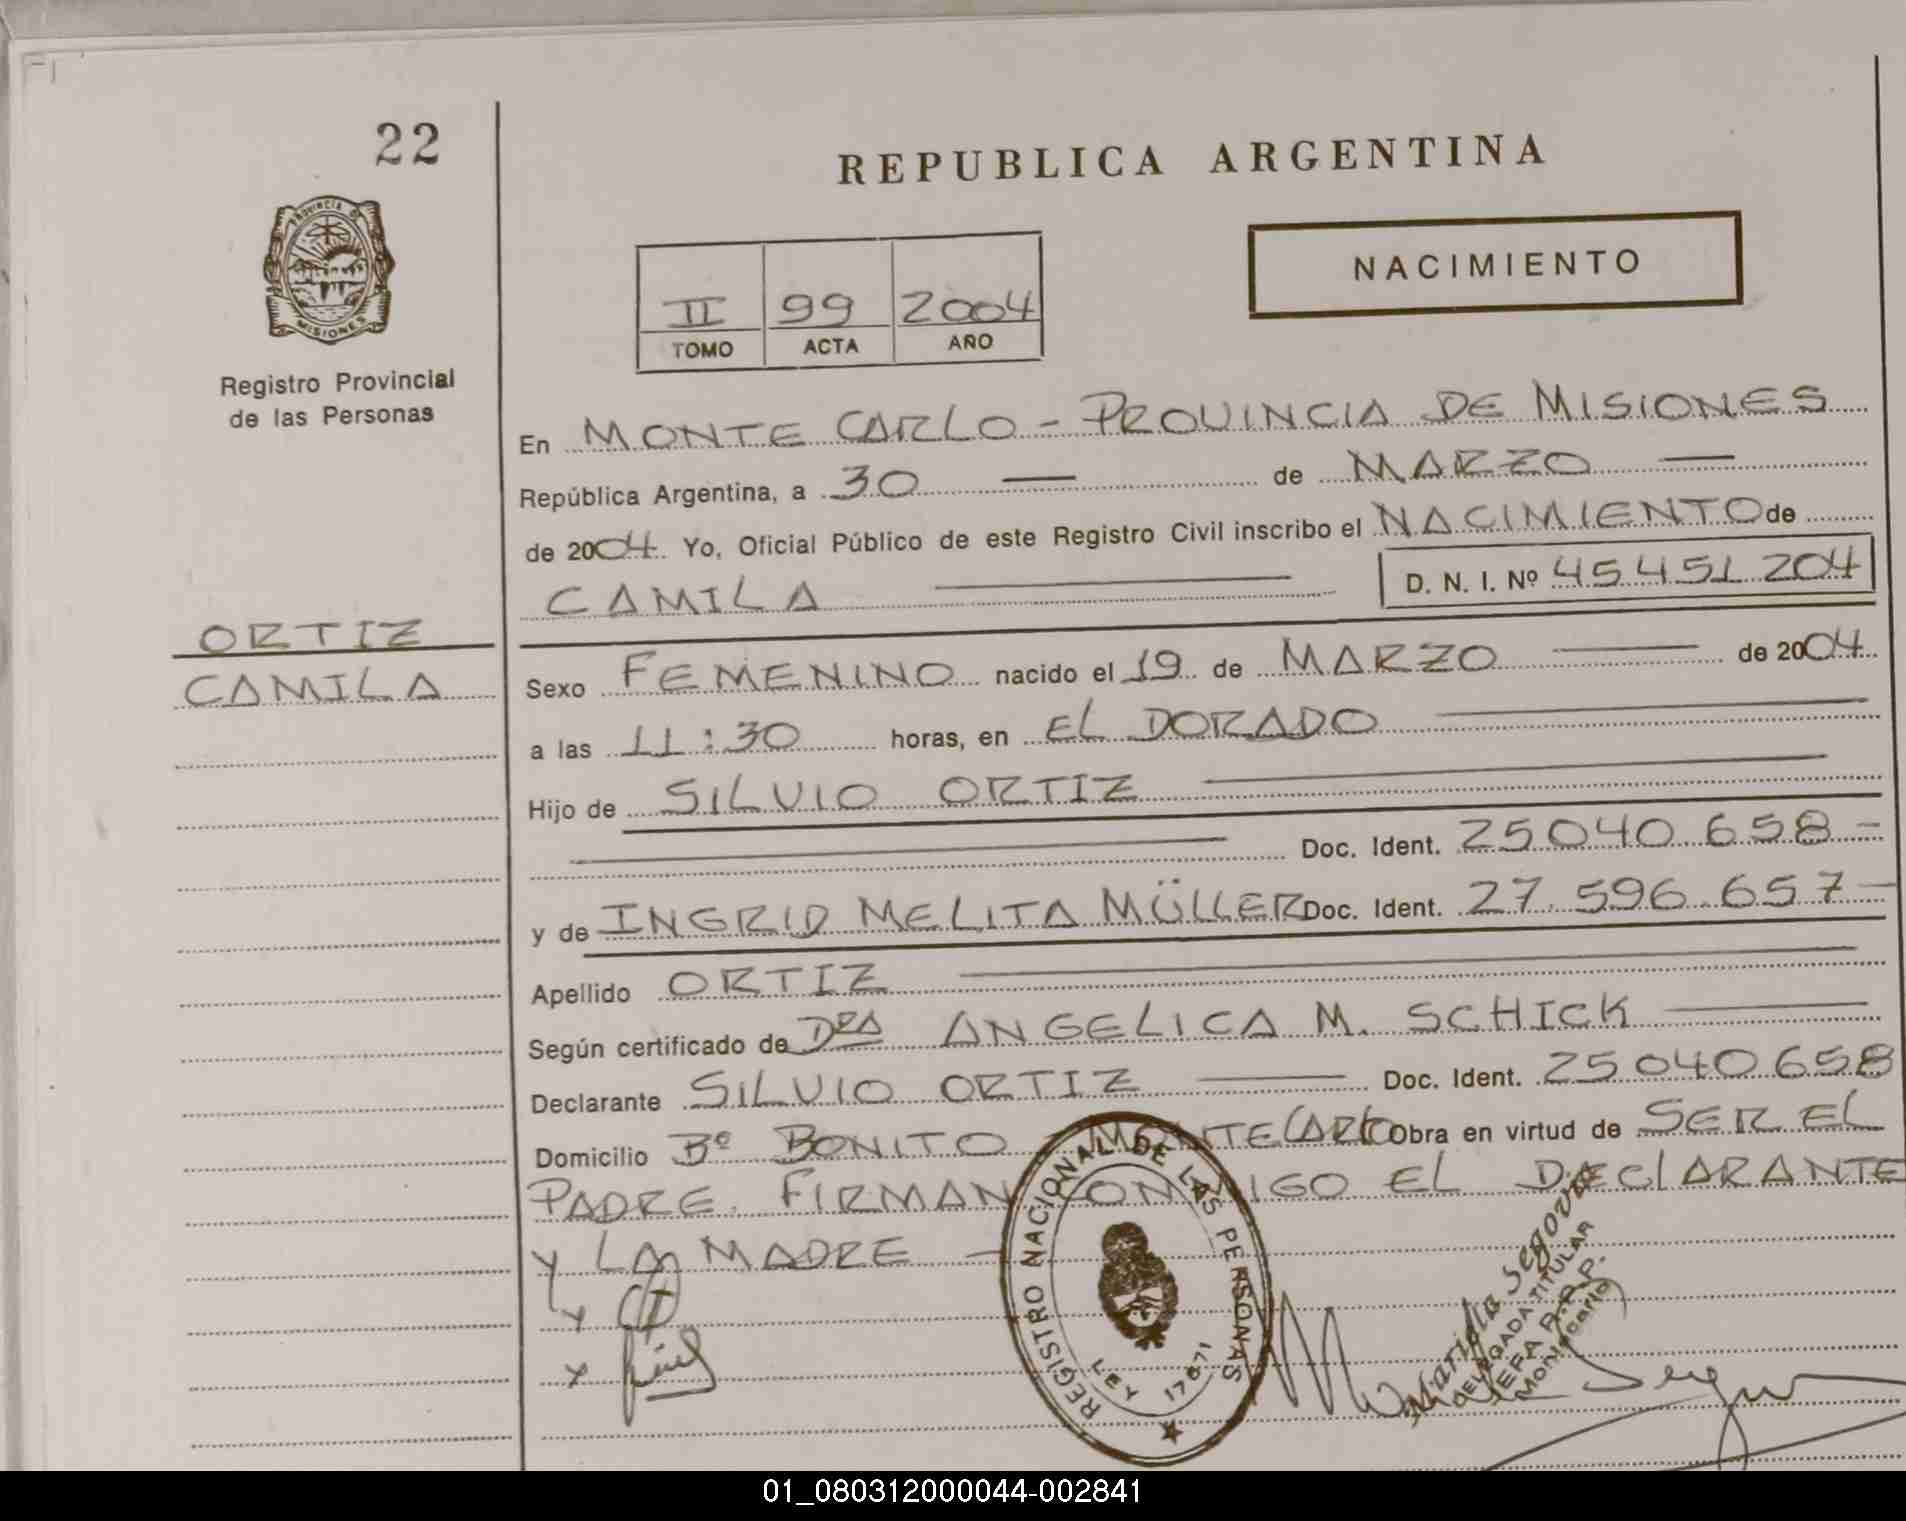 22
REPUBLICA ARGENTINA
PROVINCIA DE
MISIONES
Registro Provincial
de las Personas
NACIMIENTO
II 99 2004
TOMO ACTA AÑO
En MONTE CARLO - PROVINCIA DE MISIONES
República Argentina, a 30 — de MARZO —
de 2004 Yo, Oficial Público de este Registro Civil inscribo el NACIMIENTO de
CAMILA — D. N. I. Nº 45451204
ORTIZ
CAMILA
Sexo FEMENINO nacido el 19 de MARZO — de 2004
a las 11:30 horas, en EL DORADO —
Hijo de SILVIO ORTIZ —
— Doc. Ident. 25040658 -
y de INGRID MELITA MÜLLER Doc. Ident. 27.596.657 —
Apellido ORTIZ —
Según certificado de DRA ANGELICA M. SCHICK —
Declarante SILVIO ORTIZ — Doc. Ident. 25040658
Domicilio Bº BONITO - MONTECARLO Obra en virtud de SER EL
PADRE. FIRMAN CONMIGO EL DECLARANTE
Y LA MADRE —
REGISTRO NACIONAL DE LAS PERSONAS
LEY 17671
Segovia
DELEGADA TITULAR
JEFA R.P.P.
Montecarlo
01_080312000044-002841